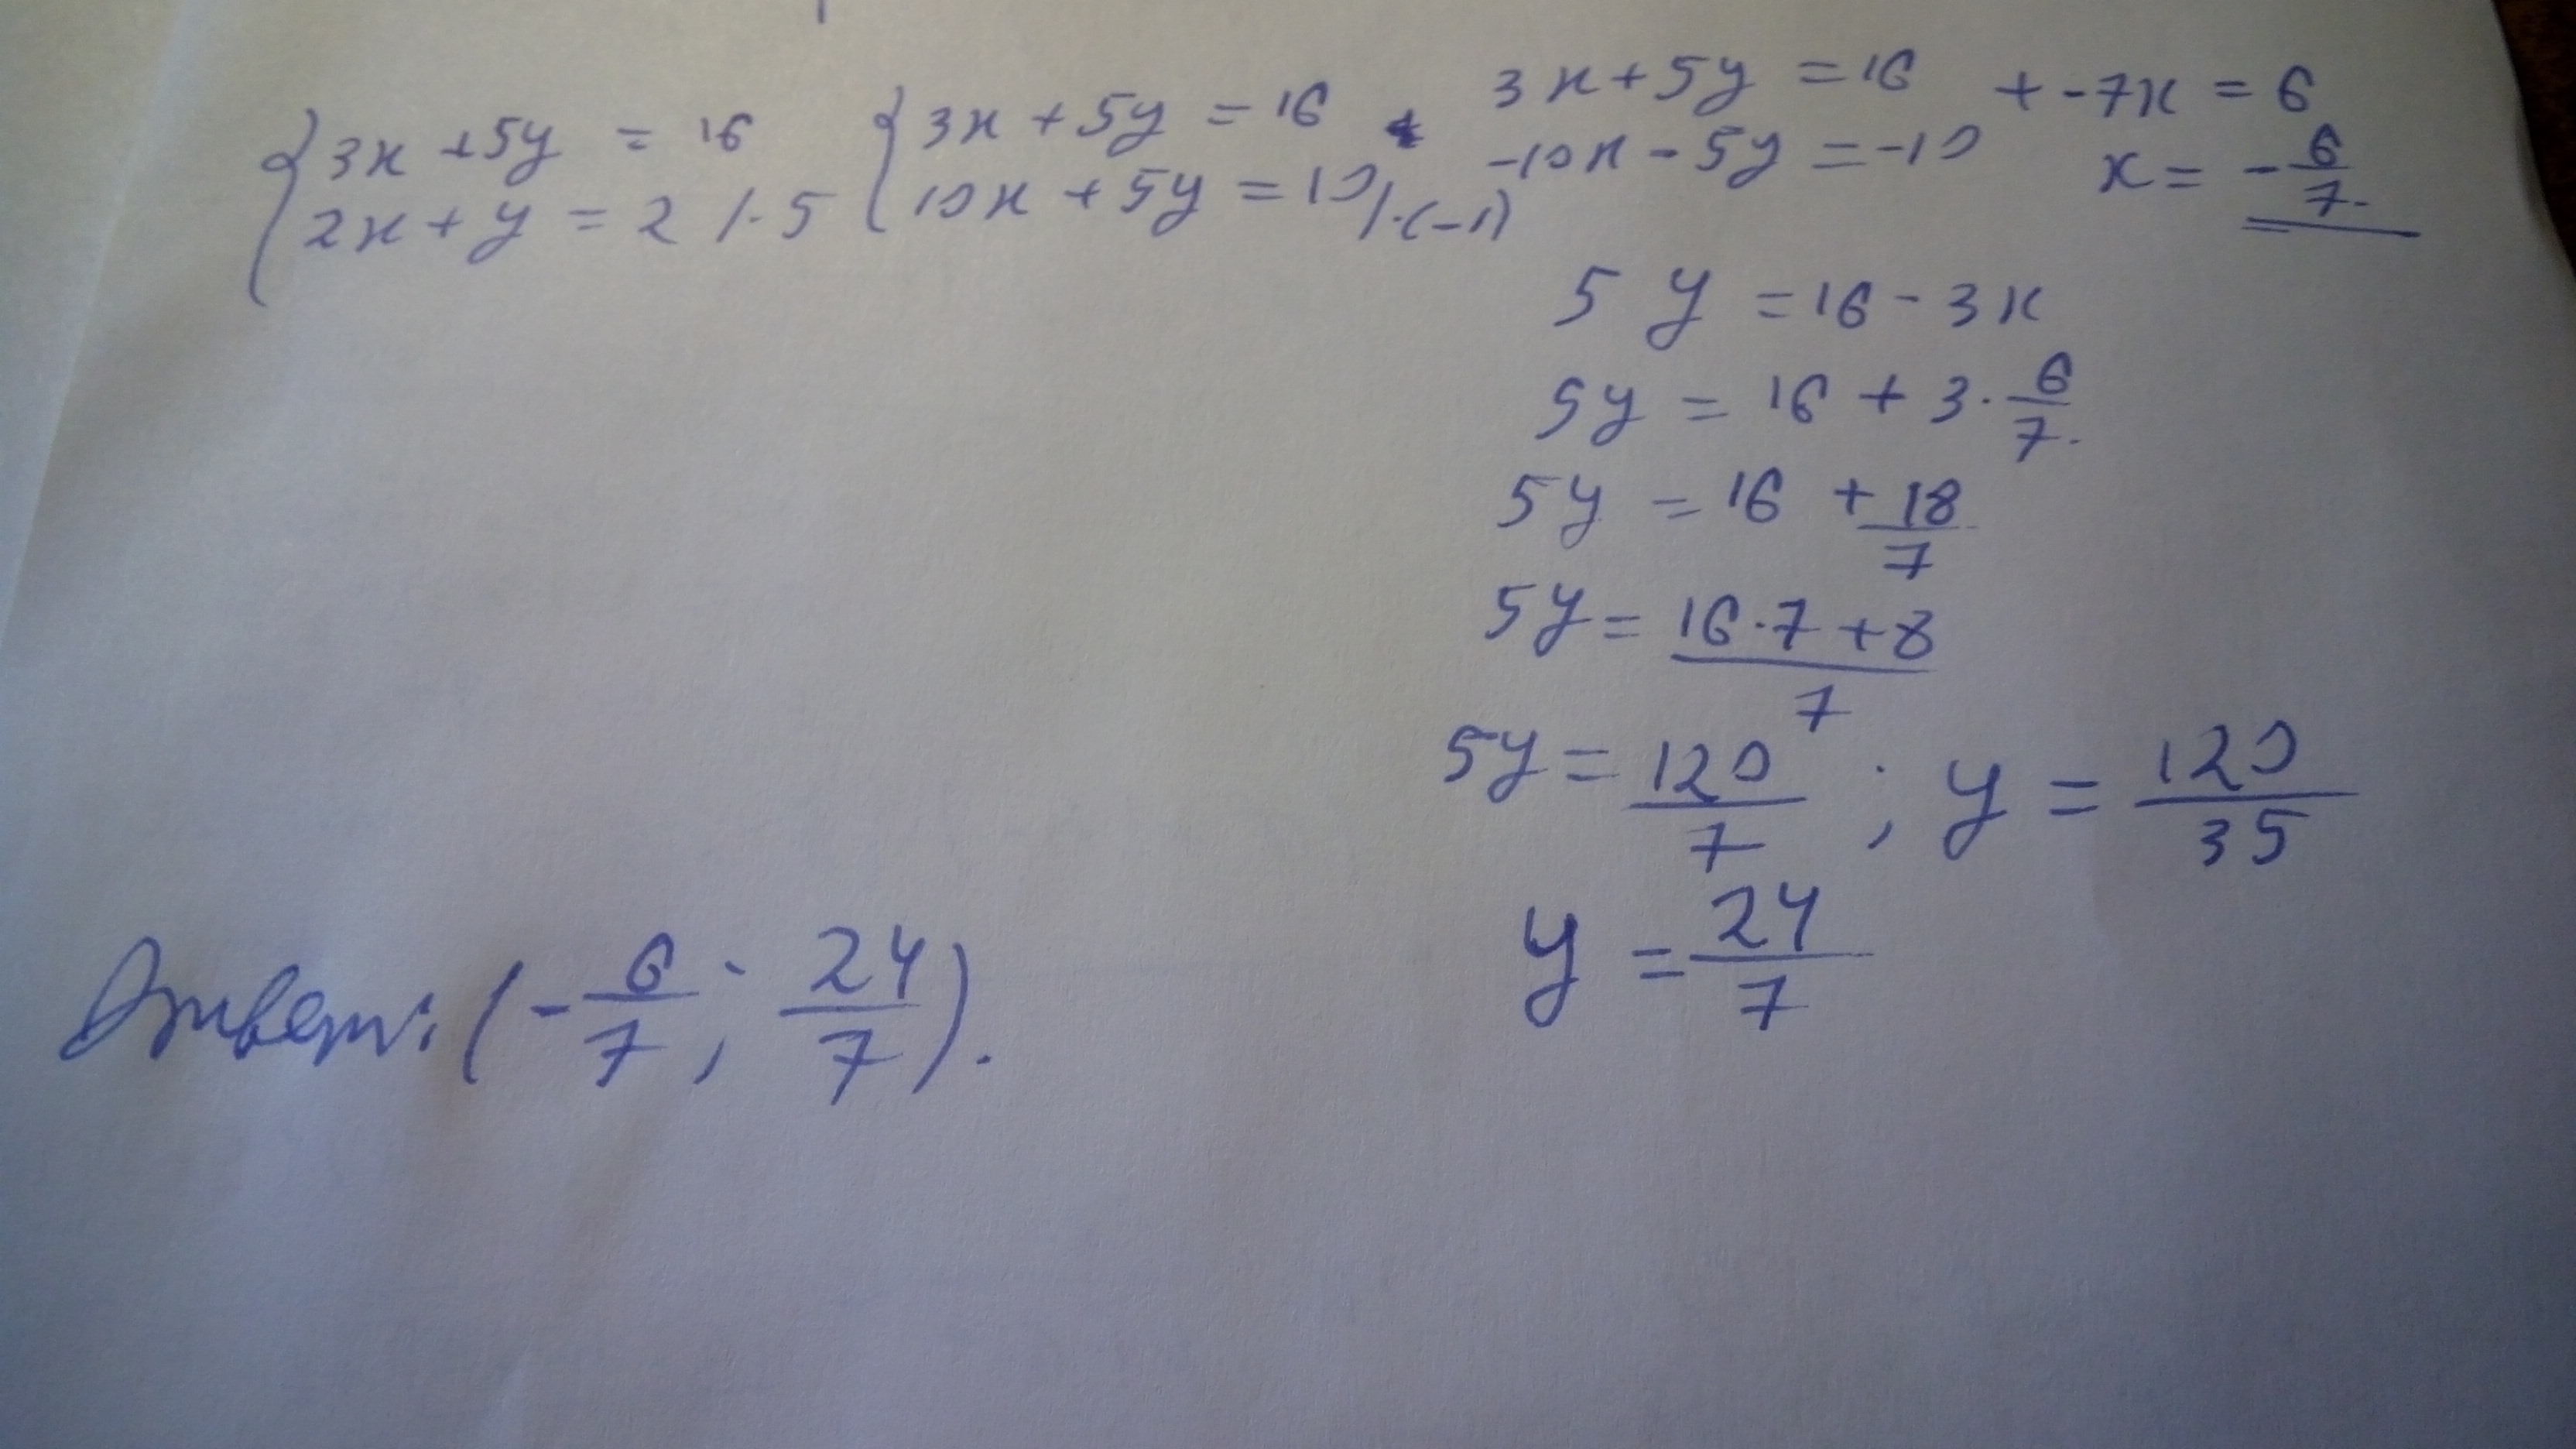 {3x + 5y = 16 {3x + 5y = 16 3x + 5y = 16 + -7x = 6
2x + y = 2 /·5 10x + 5y = 10/·(-1) -10x - 5y = -10 x = -6/7
5y = 16 - 3x
5y = 16 + 3·6/7
5y = 16 + 18/7
5y = (16·7 + 8)/7
5y = 120/7 ; y = 120/35
y = 24/7
Ответ: (-6/7; 24/7).